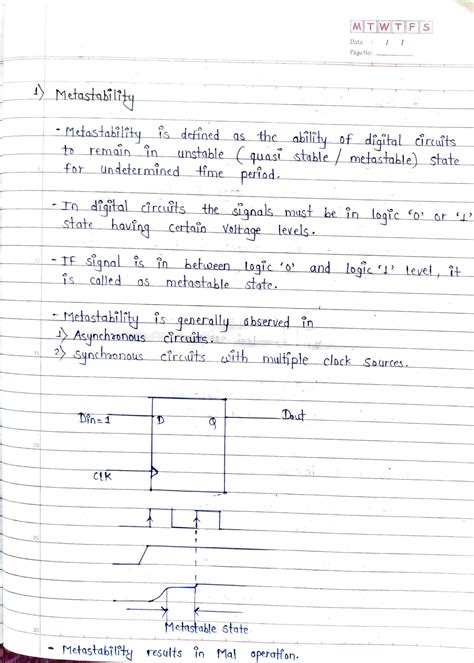 M T W T F S
Date : / /
Page No:
1) Metastability
- Metastability is defined as the ability of digital circuits
to remain in unstable (quasi stable / metastable) state
for undetermined time period.
- In digital circuits the signals must be in logic '0' or '1'
state having certain voltage levels.
- IF signal is in between logic '0' and logic '1' level, it
is called as metastable state.
- Metastability is generally observed in
1) Asynchronous circuits.
2) Synchronous circuits with multiple clock sources.
Din=1 D Q Dout
CLK
Metastable state
- Metastability results in Mal operation.